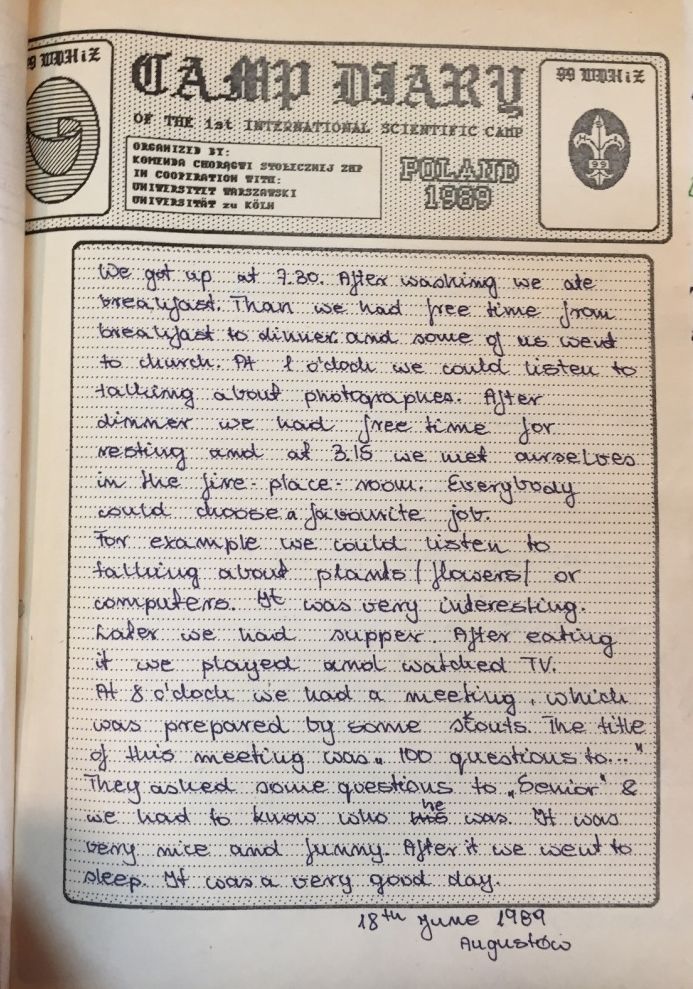 99 WDHiZ
CAMP DIARY
99 WDHiZ
OF THE 1st INTERNATIONAL SCIENTIFIC CAMP
ORGANIZED BY:
KOMENDA CHORĄGWI STOŁECZNEJ ZHP
IN COOPERATION WITH:
UNIWERSYTET WARSZAWSKI
UNIVERSITÄT zu KÖLN
POLAND
1989
99
We got up at 7.30. After washing we ate
breakfast. Than we had free time from
breakfast to dinner and some of us went
to church. At 1 o'clock we could listen to
talking about photographes. After
dinner we had free time for
resting and at 3.15 we met ourselves
in the fire-place-room. Everybody
could choose a favourite job.
For example we could listen to
talking about plants /flowers/ or
computers. It was very interesting.
Later we had supper. After eating
it we played and watched TV.
At 8 o'clock we had a meeting, which
was prepared by some scouts. The title
of this meeting was „100 questions to..."
They asked some questions to „Senior" &
we had to know who he was. It was
very nice and funny. After it we went to
sleep. It was a very good day.
18th June 1989
Augustów